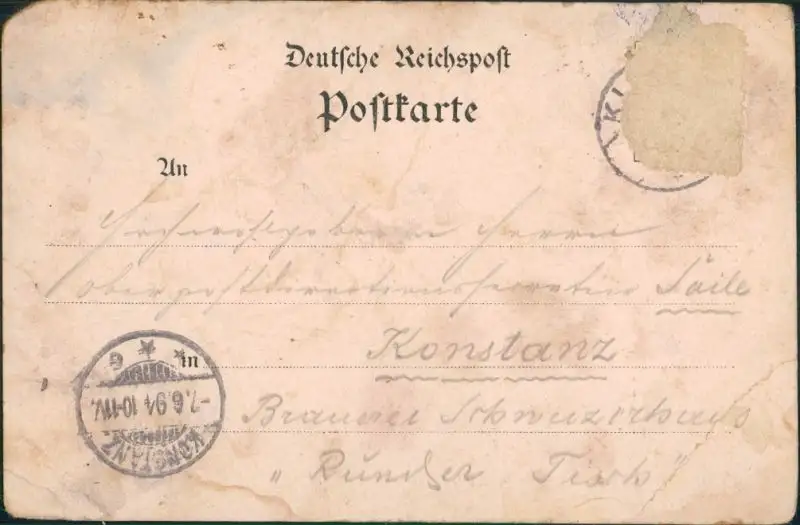 Deutsche Reichspost
Postkarte
KI
An
Hochwohlgeboren Herrn
Oberpostdirectionssecretär Saile
in Konstanz
Brauerei Schweizerhaus
"Runder Tisch"
KONSTANZ
-7.6.94 10-11V.
* * 9